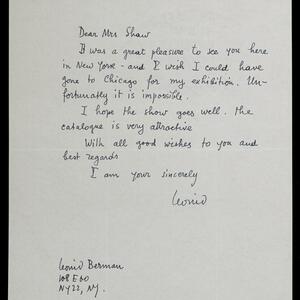 Dear Mrs Shaw
It was a great pleasure to see you here
in New York - and I wish I could have
gone to Chicago for my exhibition. Un-
fortunatly it is impossible.
I hope the show goes well. The
catalogue is very attractive
With all good wishes to you and
best regards
I am your sincerely
Leonid
Leonid Berman
108 E 60
NY 22, NY.